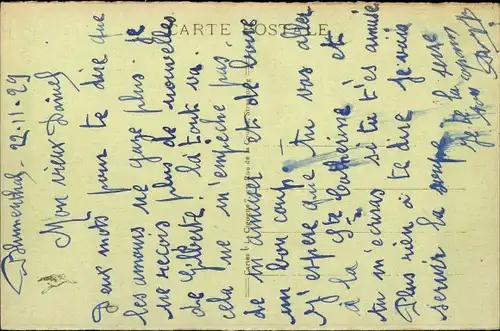 CARTE POSTALE
Blumenthal - 22-11-29
Mon vieux Daniel
Deux mots pour te dire que
les amours ne gaze plus. Je
ne reçois plus de nouvelles
de Gilberte. là tout va.
cela ne m'empêche pas
de m'amuser et de boire
un bon coup.
J'espère que tu vas aller
à la Ste Catherine et
tu m'écriras si tu t'es amusé
Plus rien à te dire je vais
servir la soupe
je te la serre